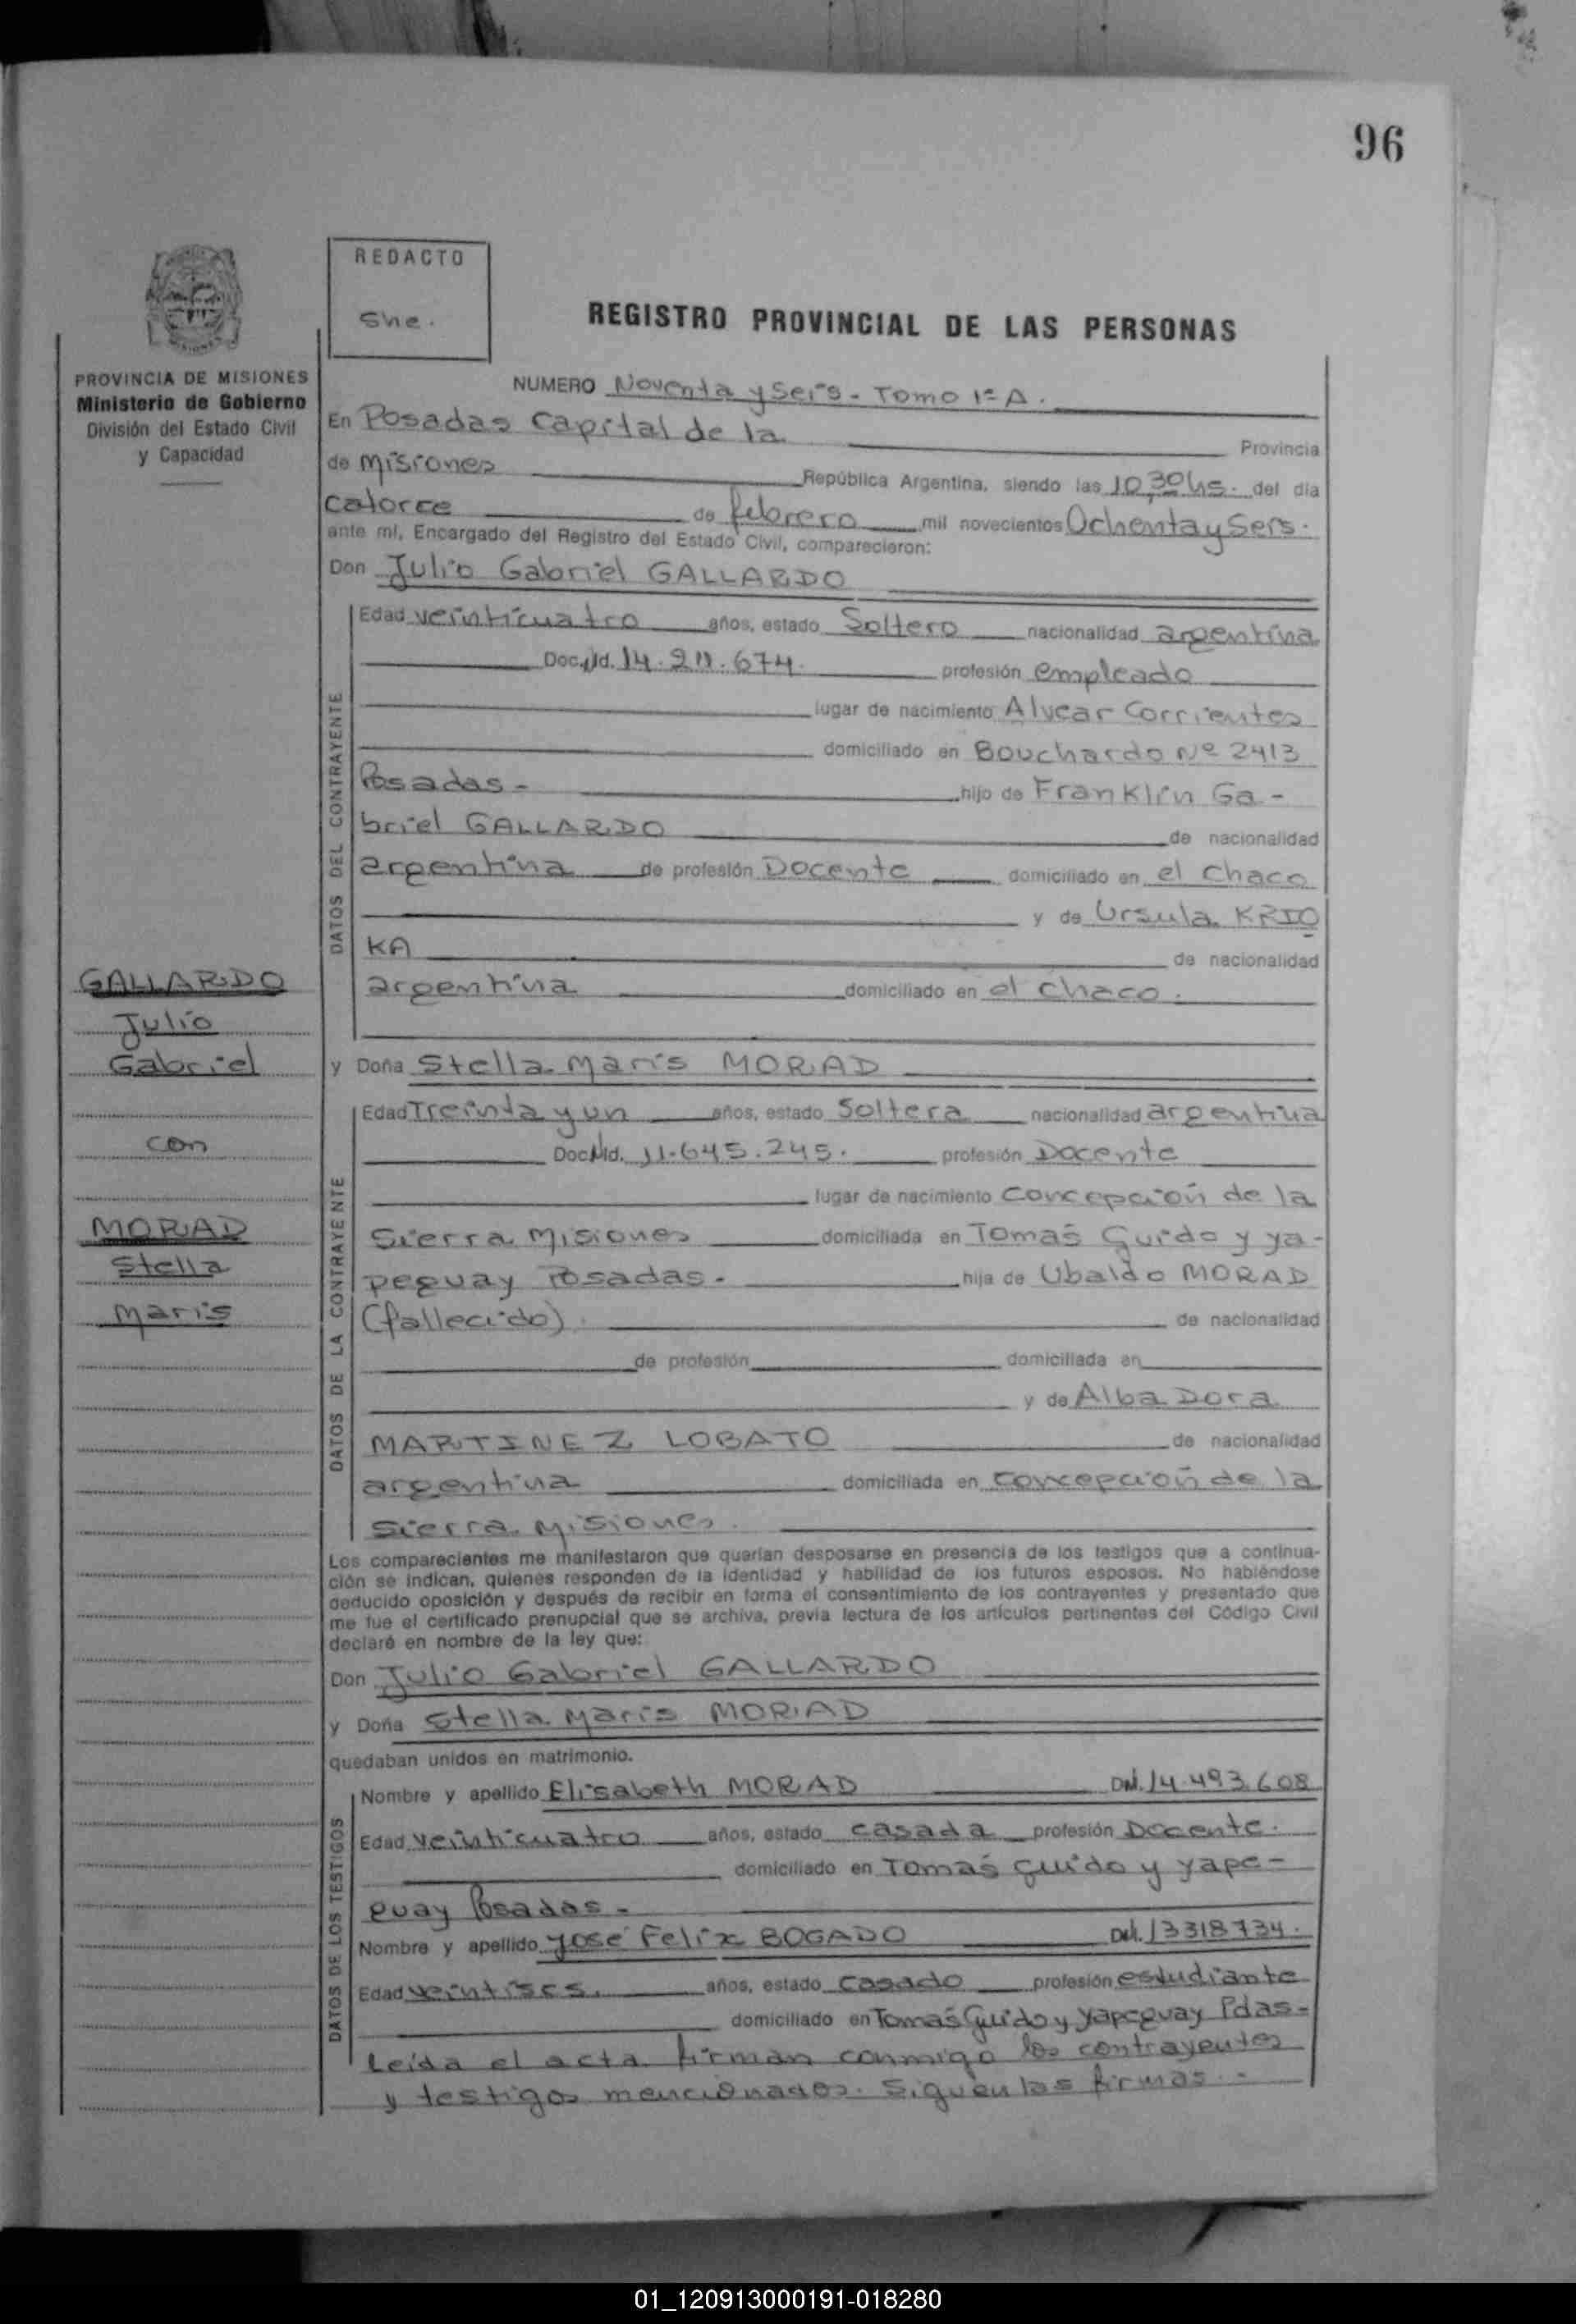 96
REDACTO
She.
REGISTRO PROVINCIAL DE LAS PERSONAS
PROVINCIA DE MISIONES
Ministerio de Gobierno
División del Estado Civil
y Capacidad
NUMERO Noventa y Seis - Tomo 1º A.
En Posadas Capital de la Provincia
de Misiones República Argentina, siendo las 10,30 hs. del día
Catorce de febrero mil novecientos Ochenta y Seis.
ante mí, Encargado del Registro del Estado Civil, comparecieron:
Don Julio Gabriel GALLARDO
DATOS DEL CONTRAYENTE
Edad veinticuatro años, estado Soltero nacionalidad argentina
Doc. Id. 14.211.674. profesión empleado
lugar de nacimiento Alvear Corrientes
domiciliado en Bouchardo Nº 2413
Posadas - hijo de Franklin Ga-
briel GALLARDO de nacionalidad
argentina de profesión Docente domiciliado en el Chaco
y de Ursula KRIO
KA de nacionalidad
argentina domiciliado en el Chaco.
GALLARDO
Julio
Gabriel
con
MORAD
Stella
Maris
y Doña Stella Maris MORAD
DATOS DE LA CONTRAYENTE
Edad Treinta y un años, estado Soltera nacionalidad argentina
Doc. Id. 11.645.245. profesión Docente
lugar de nacimiento Concepción de la
Sierra Misiones domiciliada en Tomás Guido y ya-
peguay Posadas. hija de Ubaldo MORAD
(fallecido). de nacionalidad
de profesión domiciliada en
y de Alba Dora
MARTINEZ LOBATO de nacionalidad
argentina domiciliada en Concepción de la
Sierra Misiones.
Los comparecientes me manifestaron que querían desposarse en presencia de los testigos que a continua-
ción se indican, quienes responden de la identidad y habilidad de los futuros esposos. No habiéndose
deducido oposición y después de recibir en forma el consentimiento de los contrayentes y presentado que
me fue el certificado prenupcial que se archiva, previa lectura de los artículos pertinentes del Código Civil
declaré en nombre de la ley que:
Don Julio Gabriel GALLARDO
y Doña Stella Maris MORAD
quedaban unidos en matrimonio.
DATOS DE LOS TESTIGOS
Nombre y apellido Elisabeth MORAD DNI. 14.493.608
Edad veinticuatro años, estado casada profesión Docente.
domiciliado en Tomás Guido y Yape-
guay Posadas -
Nombre y apellido José Felix BOGADO DNI. 13318734.
Edad veintiseis. años, estado casado profesión estudiante
domiciliado en Tomás Guido y Yapeguay Pdas-
Leída el acta firman conmigo los contrayentes
y testigos mencionados. Siguen las firmas. -
01_120913000191-018280